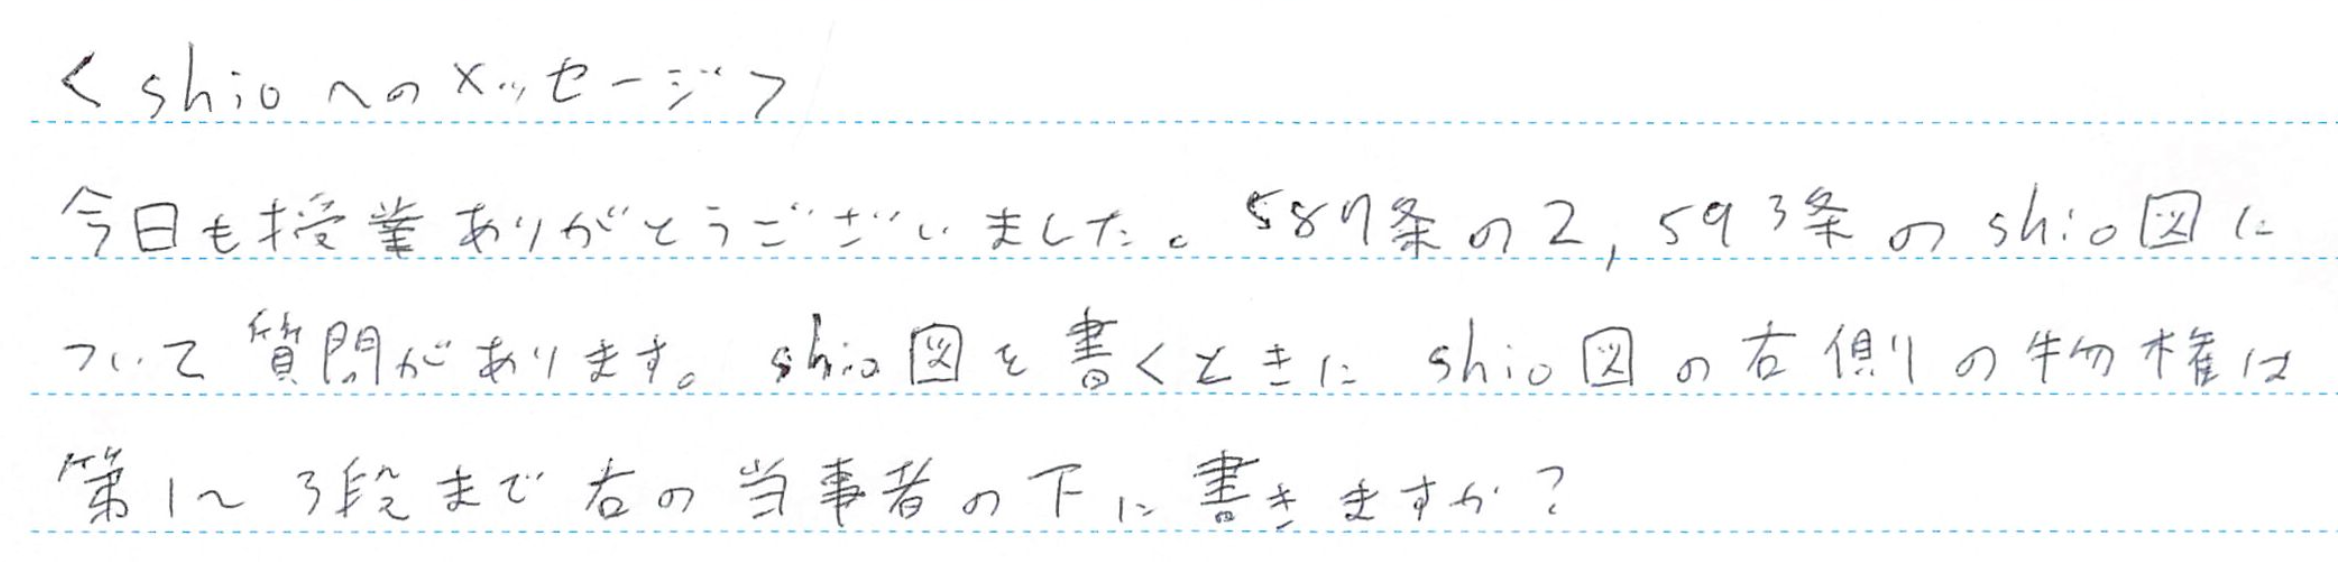 <shioへのメッセージ>
今日も授業ありがとうございました。587条の2,593条のshio図に
ついて質問があります。shio図を書くときにshio図の右側の物権は
第1〜3段まで右の当事者の下に書きますか?